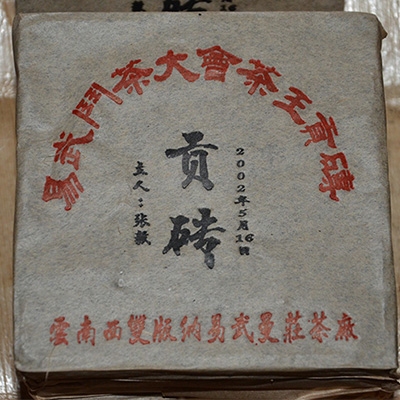 易武鬥茶大會茶王貢磚
貢砖
2002年5月16日
主人：张毅
雲南西雙版納易武曼莊茶廠